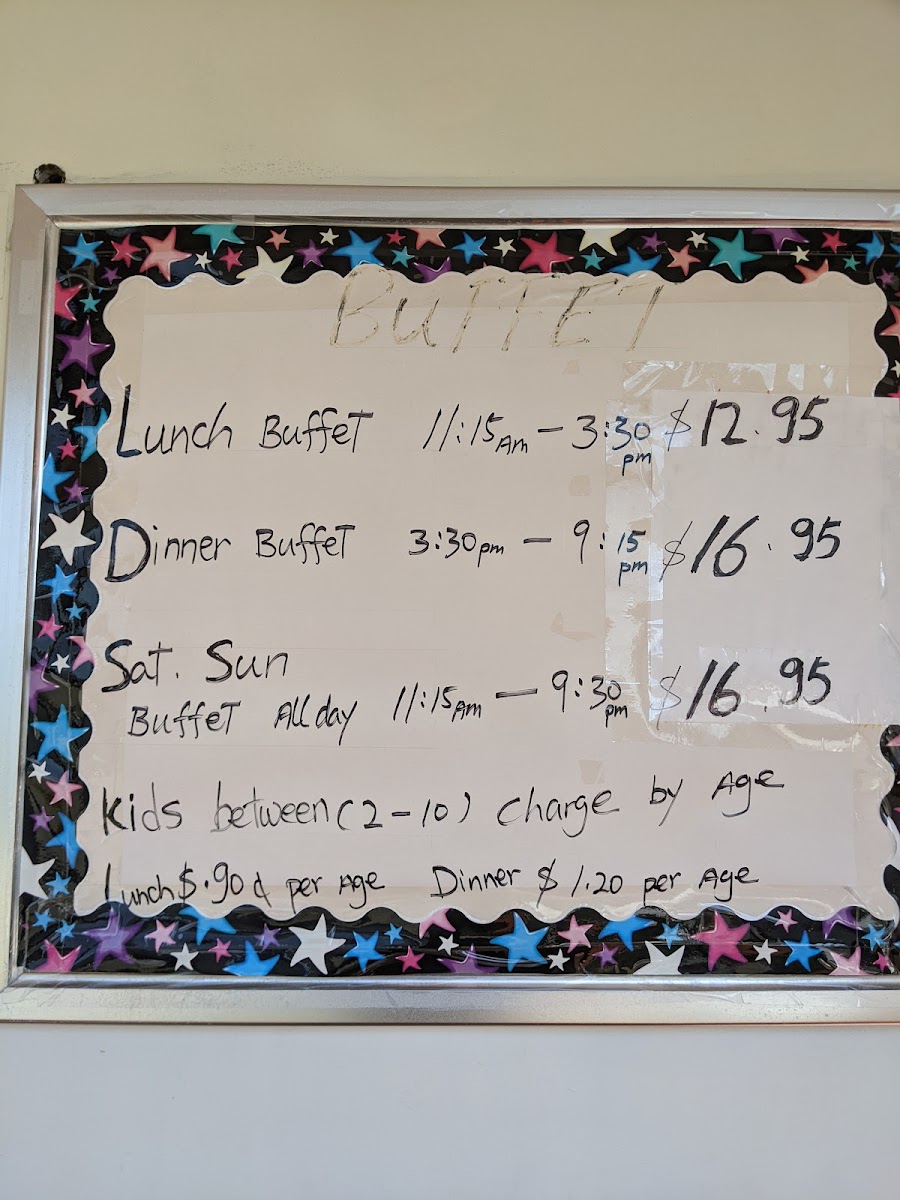 BUFFET
Lunch Buffet 11:15 Am - 3:30 pm $12.95
Dinner Buffet 3:30 pm - 9:15 pm $16.95
Sat. Sun
Buffet All day 11:15 Am - 9:30 pm $16.95
Kids between (2-10) charge by Age
Lunch $.90¢ per Age Dinner $1.20 per Age